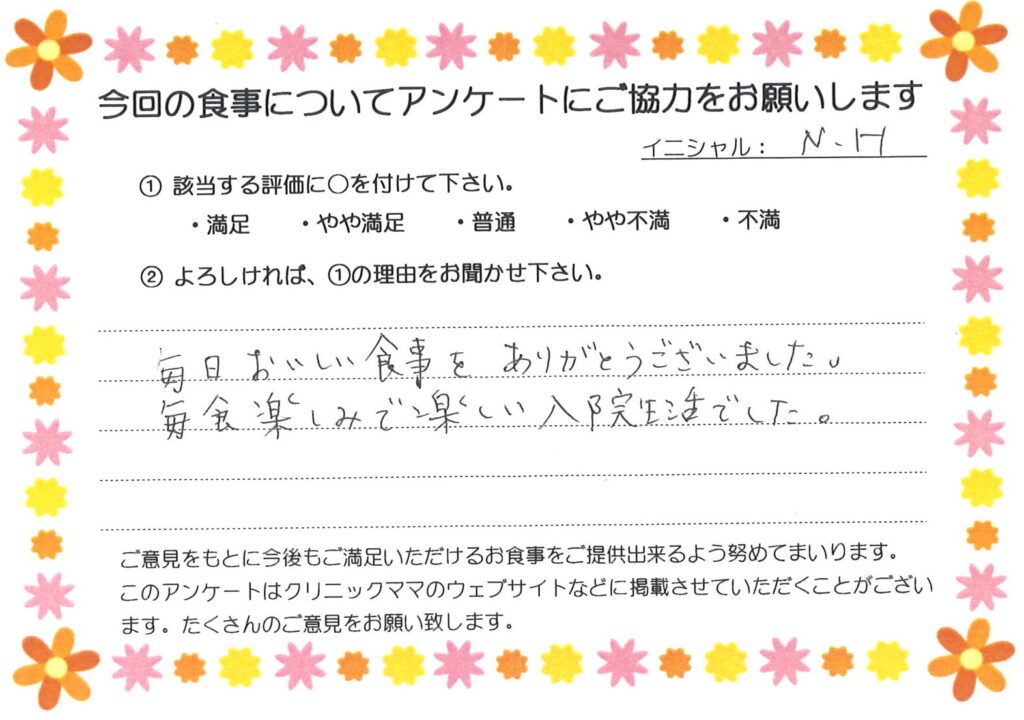 今回の食事についてアンケートにご協力をお願いします
イニシャル： N.H
① 該当する評価に○を付けて下さい。
・満足　・やや満足　・普通　・やや不満　・不満
② よろしければ、①の理由をお聞かせ下さい。
毎日おいしい食事を ありがとうございました。
毎食楽しみで楽しい入院生活でした。
ご意見をもとに今後もご満足いただけるお食事をご提供出来るよう努めてまいります。
このアンケートはクリニックママのウェブサイトなどに掲載させていただくことがござい
ます。たくさんのご意見をお願い致します。